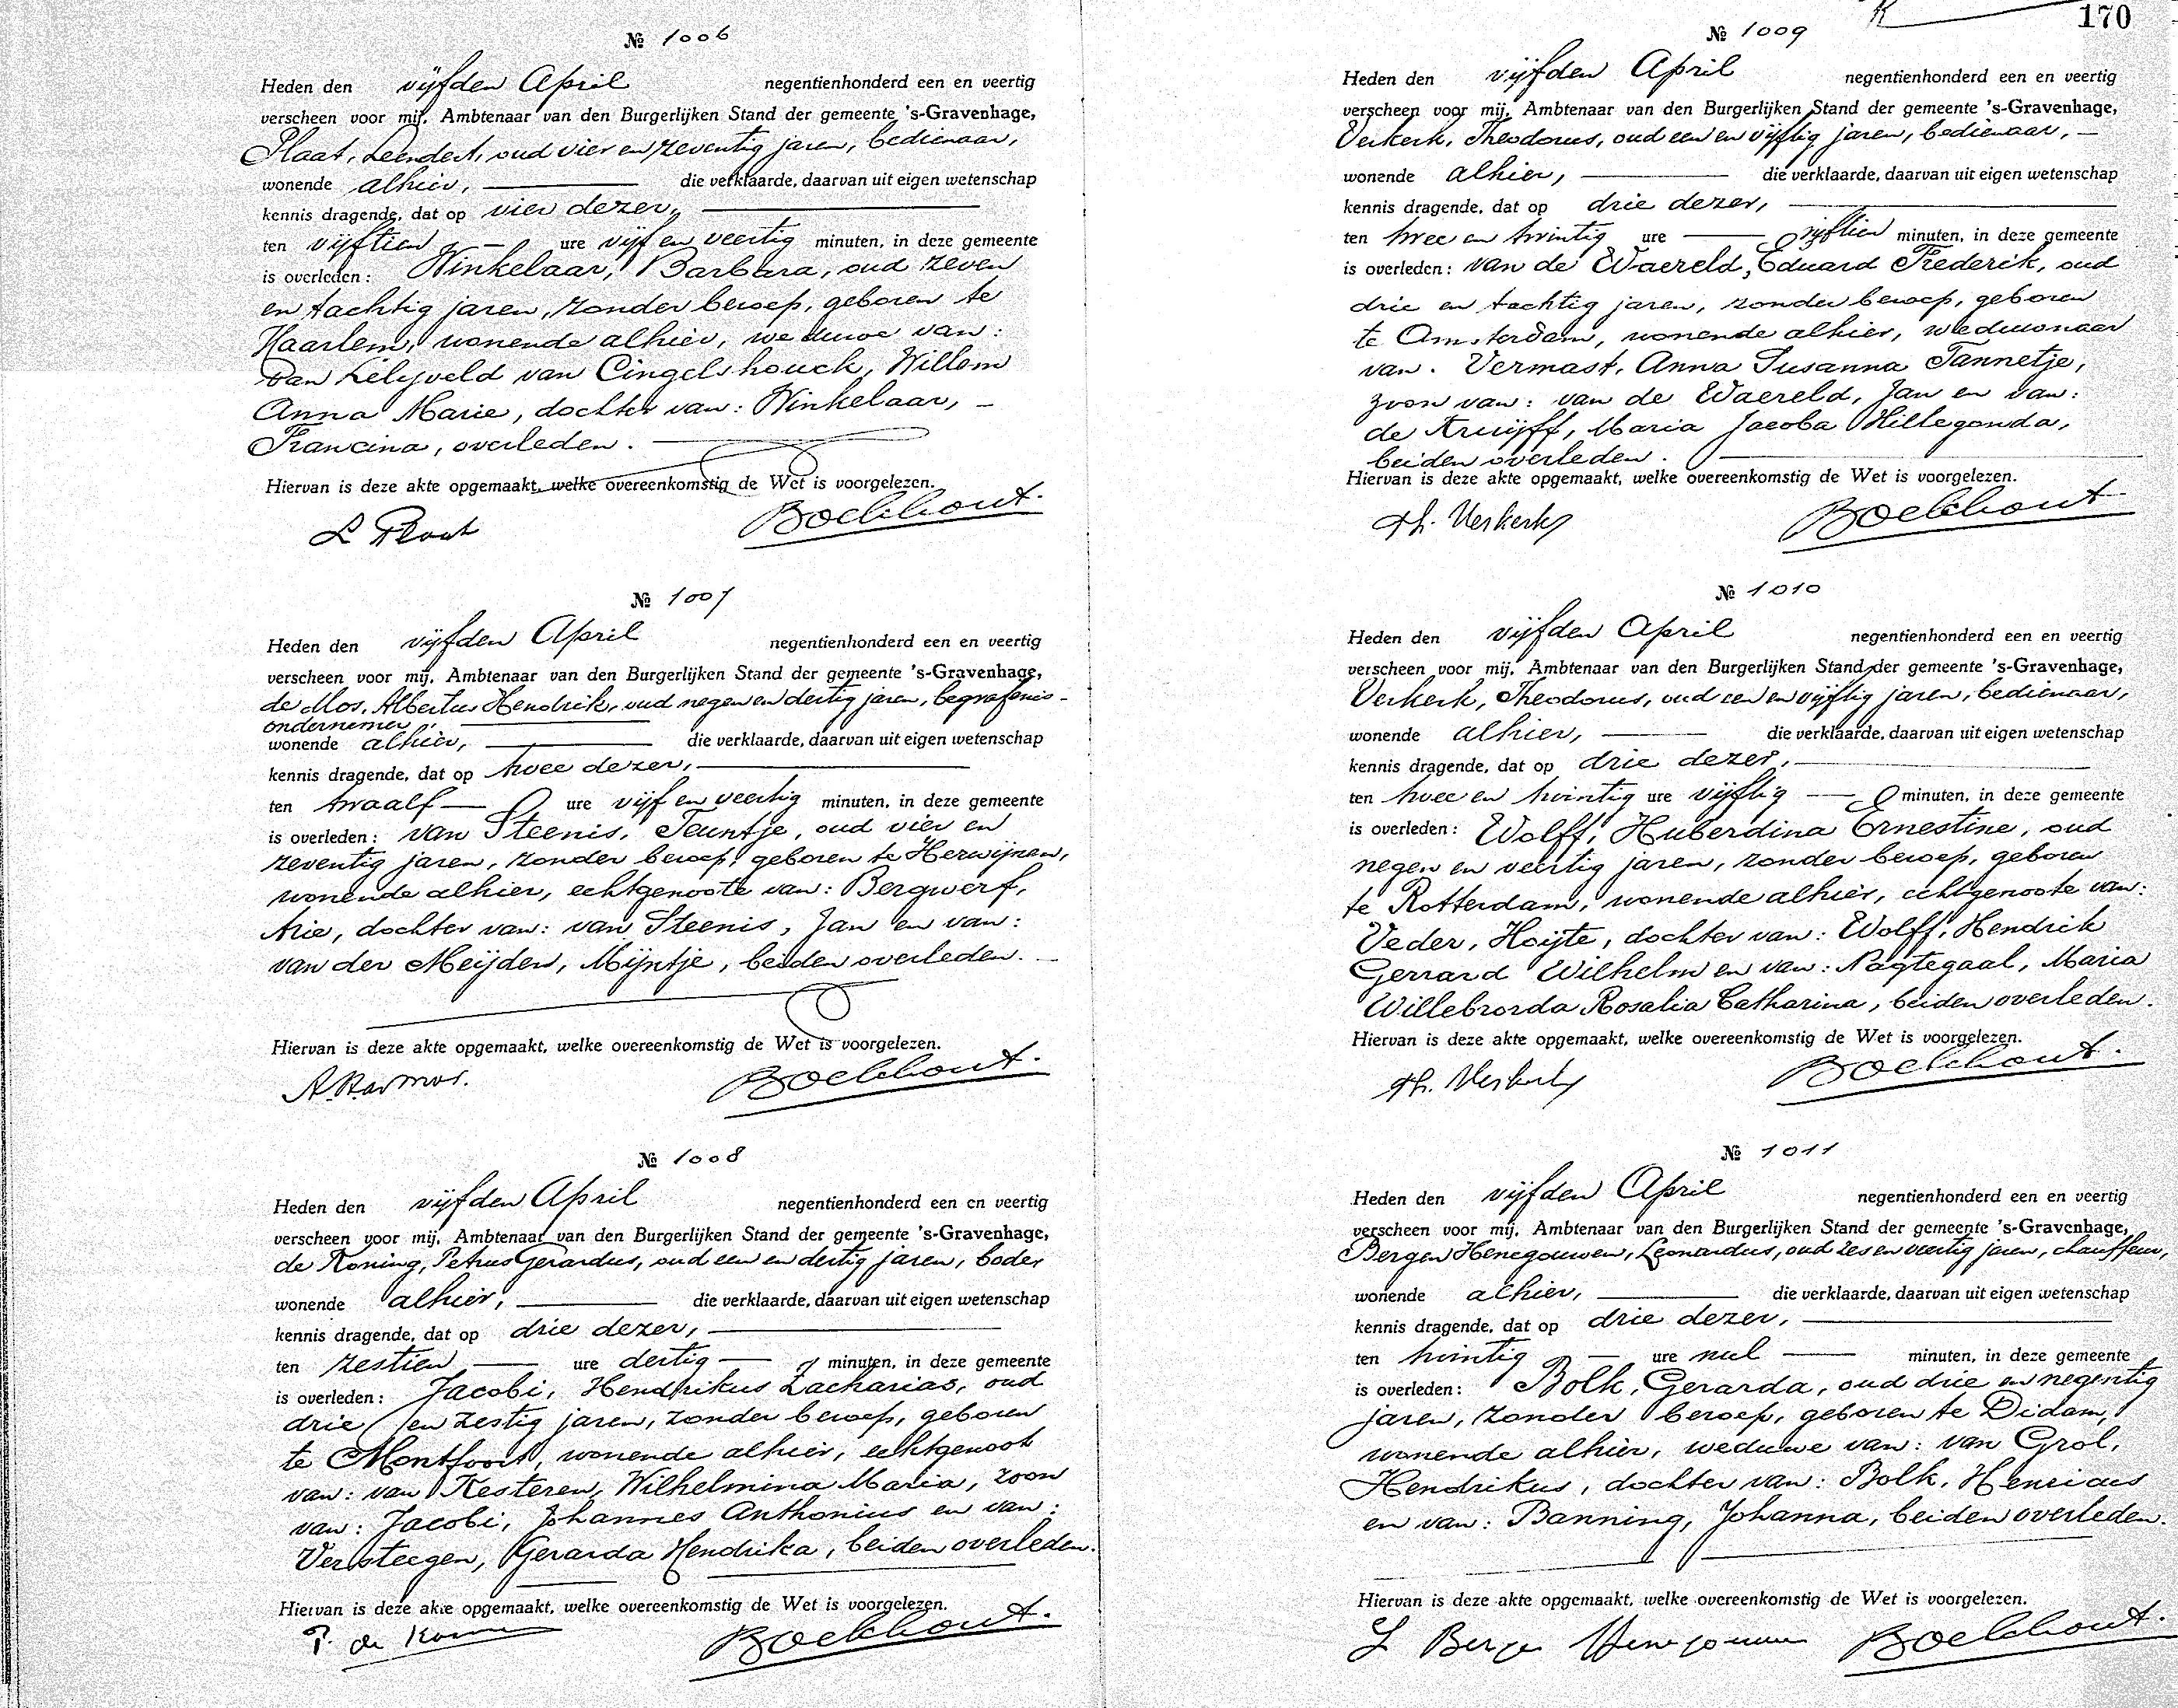 № 1006
Heden den vijfden April negentienhonderd een en veertig
verscheen voor mij, Ambtenaar van den Burgerlijken Stand der gemeente 's-Gravenhage,
Plaat, Leendert, oud vier en zeventig jaren, bedienaar,
wonende alhier, die verklaarde, daarvan uit eigen wetenschap
kennis dragende, dat op vier dezer,
ten vijftien ure vijf en veertig minuten, in deze gemeente
is overleden: Winkelaar, Barbara, oud zeven
en tachtig jaren, zonder beroep, geboren te
Haarlem, wonende alhier, weduwe van:
van Lelyveld van Cingelshouck, Willem
Anna Marie, dochter van: Winkelaar, -
Francina, overleden.
Hiervan is deze akte opgemaakt, welke overeenkomstig de Wet is voorgelezen.
L Plaat Boekhout.
№ 1007
Heden den vijfden April negentienhonderd een en veertig
verscheen voor mij, Ambtenaar van den Burgerlijken Stand der gemeente 's-Gravenhage,
de Mos, Albertus Hendrik, oud negen en dertig jaren, begrafenis-
ondernemer,
wonende alhier, die verklaarde, daarvan uit eigen wetenschap
kennis dragende, dat op twee dezer,
ten twaalf ure vijf en veertig minuten, in deze gemeente
is overleden: van Steenis, Teuntje, oud vier en
zeventig jaren, zonder beroep, geboren te Herwijnen,
wonende alhier, echtgenoote van: Bergwerf,
Arie, dochter van: van Steenis, Jan en van:
van der Meijden, Mijntje, beiden overleden.
Hiervan is deze akte opgemaakt, welke overeenkomstig de Wet is voorgelezen.
Boekhout.
№ 1008
Heden den vijfden April negentienhonderd een en veertig
verscheen voor mij, Ambtenaar van den Burgerlijken Stand der gemeente 's-Gravenhage,
de Koning, Petrus Gerardus, oud een en dertig jaren, bode,
wonende alhier, die verklaarde, daarvan uit eigen wetenschap
kennis dragende, dat op drie dezer,
ten zestien ure dertig minuten, in deze gemeente
is overleden: Jacobi, Hendrikus Zacharias, oud
drie en zestig jaren, zonder beroep, geboren
te Montfoort, wonende alhier, echtgenoot
van: van Kesteren, Wilhelmina Maria, zoon
van: Jacobi, Johannes Anthonius en van:
Versteegen, Gerarda Hendrika, beiden overleden.
Hiervan is deze akte opgemaakt, welke overeenkomstig de Wet is voorgelezen.
P. de Koning Boekhout.
170
№ 1009
Heden den vijfden April negentienhonderd een en veertig
verscheen voor mij, Ambtenaar van den Burgerlijken Stand der gemeente 's-Gravenhage,
Verkerk, Theodorus, oud een en vijftig jaren, bedienaar, -
wonende alhier, die verklaarde, daarvan uit eigen wetenschap
kennis dragende, dat op drie dezer,
ten twee en twintig ure vijftien minuten, in deze gemeente
is overleden: van de Waereld, Eduard Frederik, oud
drie en tachtig jaren, zonder beroep, geboren
te Amsterdam, wonende alhier, weduwnaar
van: Vermast, Anna Susanna Tannetje,
zoon van: van de Waereld, Jan en van:
de Kruijff, Maria Jacoba Hillegonda,
beiden overleden.
Hiervan is deze akte opgemaakt, welke overeenkomstig de Wet is voorgelezen.
Th. Verkerk Boekhout.
№ 1010
Heden den vijfden April negentienhonderd een en veertig
verscheen voor mij, Ambtenaar van den Burgerlijken Stand der gemeente 's-Gravenhage,
Verkerk, Theodorus, oud een en vijftig jaren, bedienaar,
wonende alhier, die verklaarde, daarvan uit eigen wetenschap
kennis dragende, dat op drie dezer,
ten twee en twintig ure vijftig minuten, in deze gemeente
is overleden: Wolff, Huberdina Ernestine, oud
negen en veertig jaren, zonder beroep, geboren
te Rotterdam, wonende alhier, echtgenoote van:
Veder, Hoijte, dochter van: Wolff, Hendrik
Gerrard Wilhelm en van: Nagtegaal, Maria
Willebrorda Rosalia Catharina, beiden overleden.
Hiervan is deze akte opgemaakt, welke overeenkomstig de Wet is voorgelezen.
Th. Verkerk Boekhout.
№ 1011
Heden den vijfden April negentienhonderd een en veertig
verscheen voor mij, Ambtenaar van den Burgerlijken Stand der gemeente 's-Gravenhage,
Bergen Henegouwen, Leonardus, oud zes en veertig jaren, chauffeur,
wonende alhier, die verklaarde, daarvan uit eigen wetenschap
kennis dragende, dat op drie dezer,
ten twintig ure nul minuten, in deze gemeente
is overleden: Bolk, Gerarda, oud drie en negentig
jaren, zonder beroep, geboren te Didam,
wonende alhier, weduwe van: van Grol,
Hendrikus, dochter van: Bolk, Henricus
en van: Banning, Johanna, beiden overleden.
Hiervan is deze akte opgemaakt, welke overeenkomstig de Wet is voorgelezen.
L Bergen Henegouwen Boekhout.